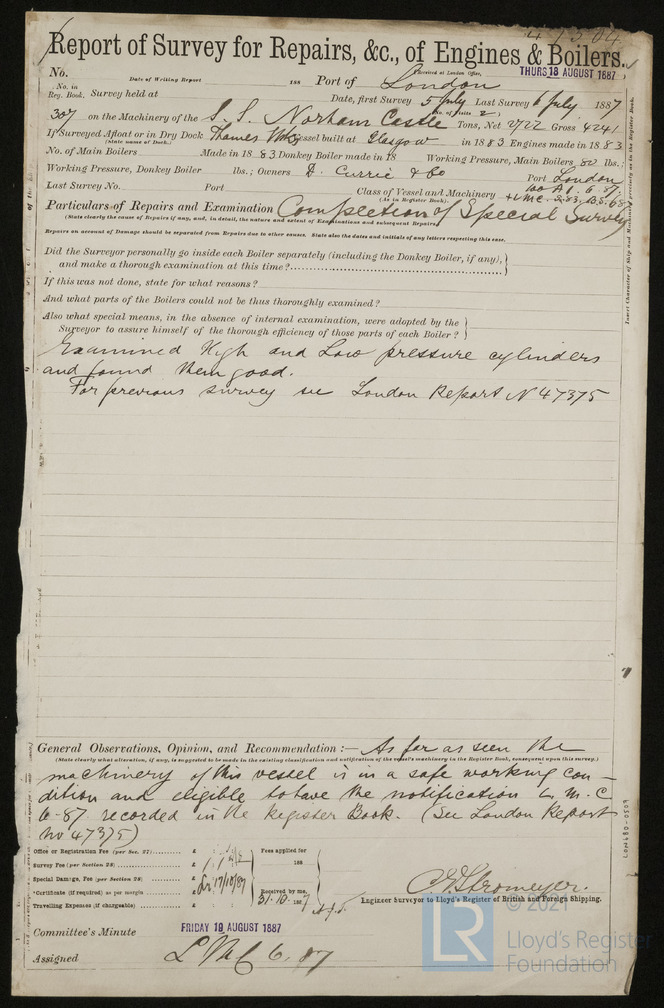 47504
Report of Survey for Repairs, &c., of Engines & Boilers.
No. Date of Writing Report 188 Port of London Received at London Office, THURS 18 AUGUST 1887
No. in Reg. Book. Survey held at Date, first Survey 5 July Last Survey 6 July 1887
(No. of Visits 2)
307 on the Machinery of the S.S. Norham Castle Tons, Net 2722 Gross 4241
If Surveyed Afloat or in Dry Dock Thames Vessel built at Glasgow in 1883 Engines made in 1883
(State name of Dock.)
No. of Main Boilers Made in 1883 Donkey Boiler made in 18 Working Pressure, Main Boilers 80 lbs.;
Working Pressure, Donkey Boiler lbs.; Owners D. Currie & Co Port London
Last Survey No. Port Class of Vessel and Machinery 100 A1. 6.87.
(As in Register Book). + L.M.C. 3.83. B.S. 6.8
Particulars of Repairs and Examination Completion of Special Survey
(State clearly the cause of Repairs if any, and, in detail, the nature and extent of Examinations and subsequent Repairs.
Repairs on account of Damage should be separated from Repairs due to other causes. State also the dates and initials of any letters respecting this case.
Did the Surveyor personally go inside each Boiler separately (including the Donkey Boiler, if any),
and make a thorough examination at this time?
If this was not done, state for what reasons?
And what parts of the Boilers could not be thus thoroughly examined?
Also what special means, in the absence of internal examination, were adopted by the
Surveyor to assure himself of the thorough efficiency of those parts of each Boiler?
Examined High and Low pressure cylinders
and found them good.
For previous survey see London Report No 47375
General Observations, Opinion, and Recommendation:— As far as seen the
(State clearly what alteration, if any, is suggested to be made in the existing classification and notification of the vessel's machinery in the Register Book, consequent upon this survey.)
machinery of this vessel is in a safe working con-
dition and eligible to have the notification L.M.C.
6-87 recorded in the Register Book. (See London Report
No 47375)
Office or Registration Fee (per Sec. 27) £ Fees applied for
Survey Fee (per Section 28) £ 188
Special Damage, Fee (per Section 28) £ 17/10/87
*Certificate (if required) as per margin £ Received by me,
Travelling Expenses (if chargeable) £ 31.10.1887
C.E. Stromeyer.
Engineer Surveyor to Lloyd's Register of British and Foreign Shipping.
Committee's Minute FRIDAY 19 AUGUST 1887
Assigned LMC 6.87
Insert Character of Ship and Machinery precisely as in the Register Book.
LON680-0509
LR
© 2021
Lloyd's Register
Foundation